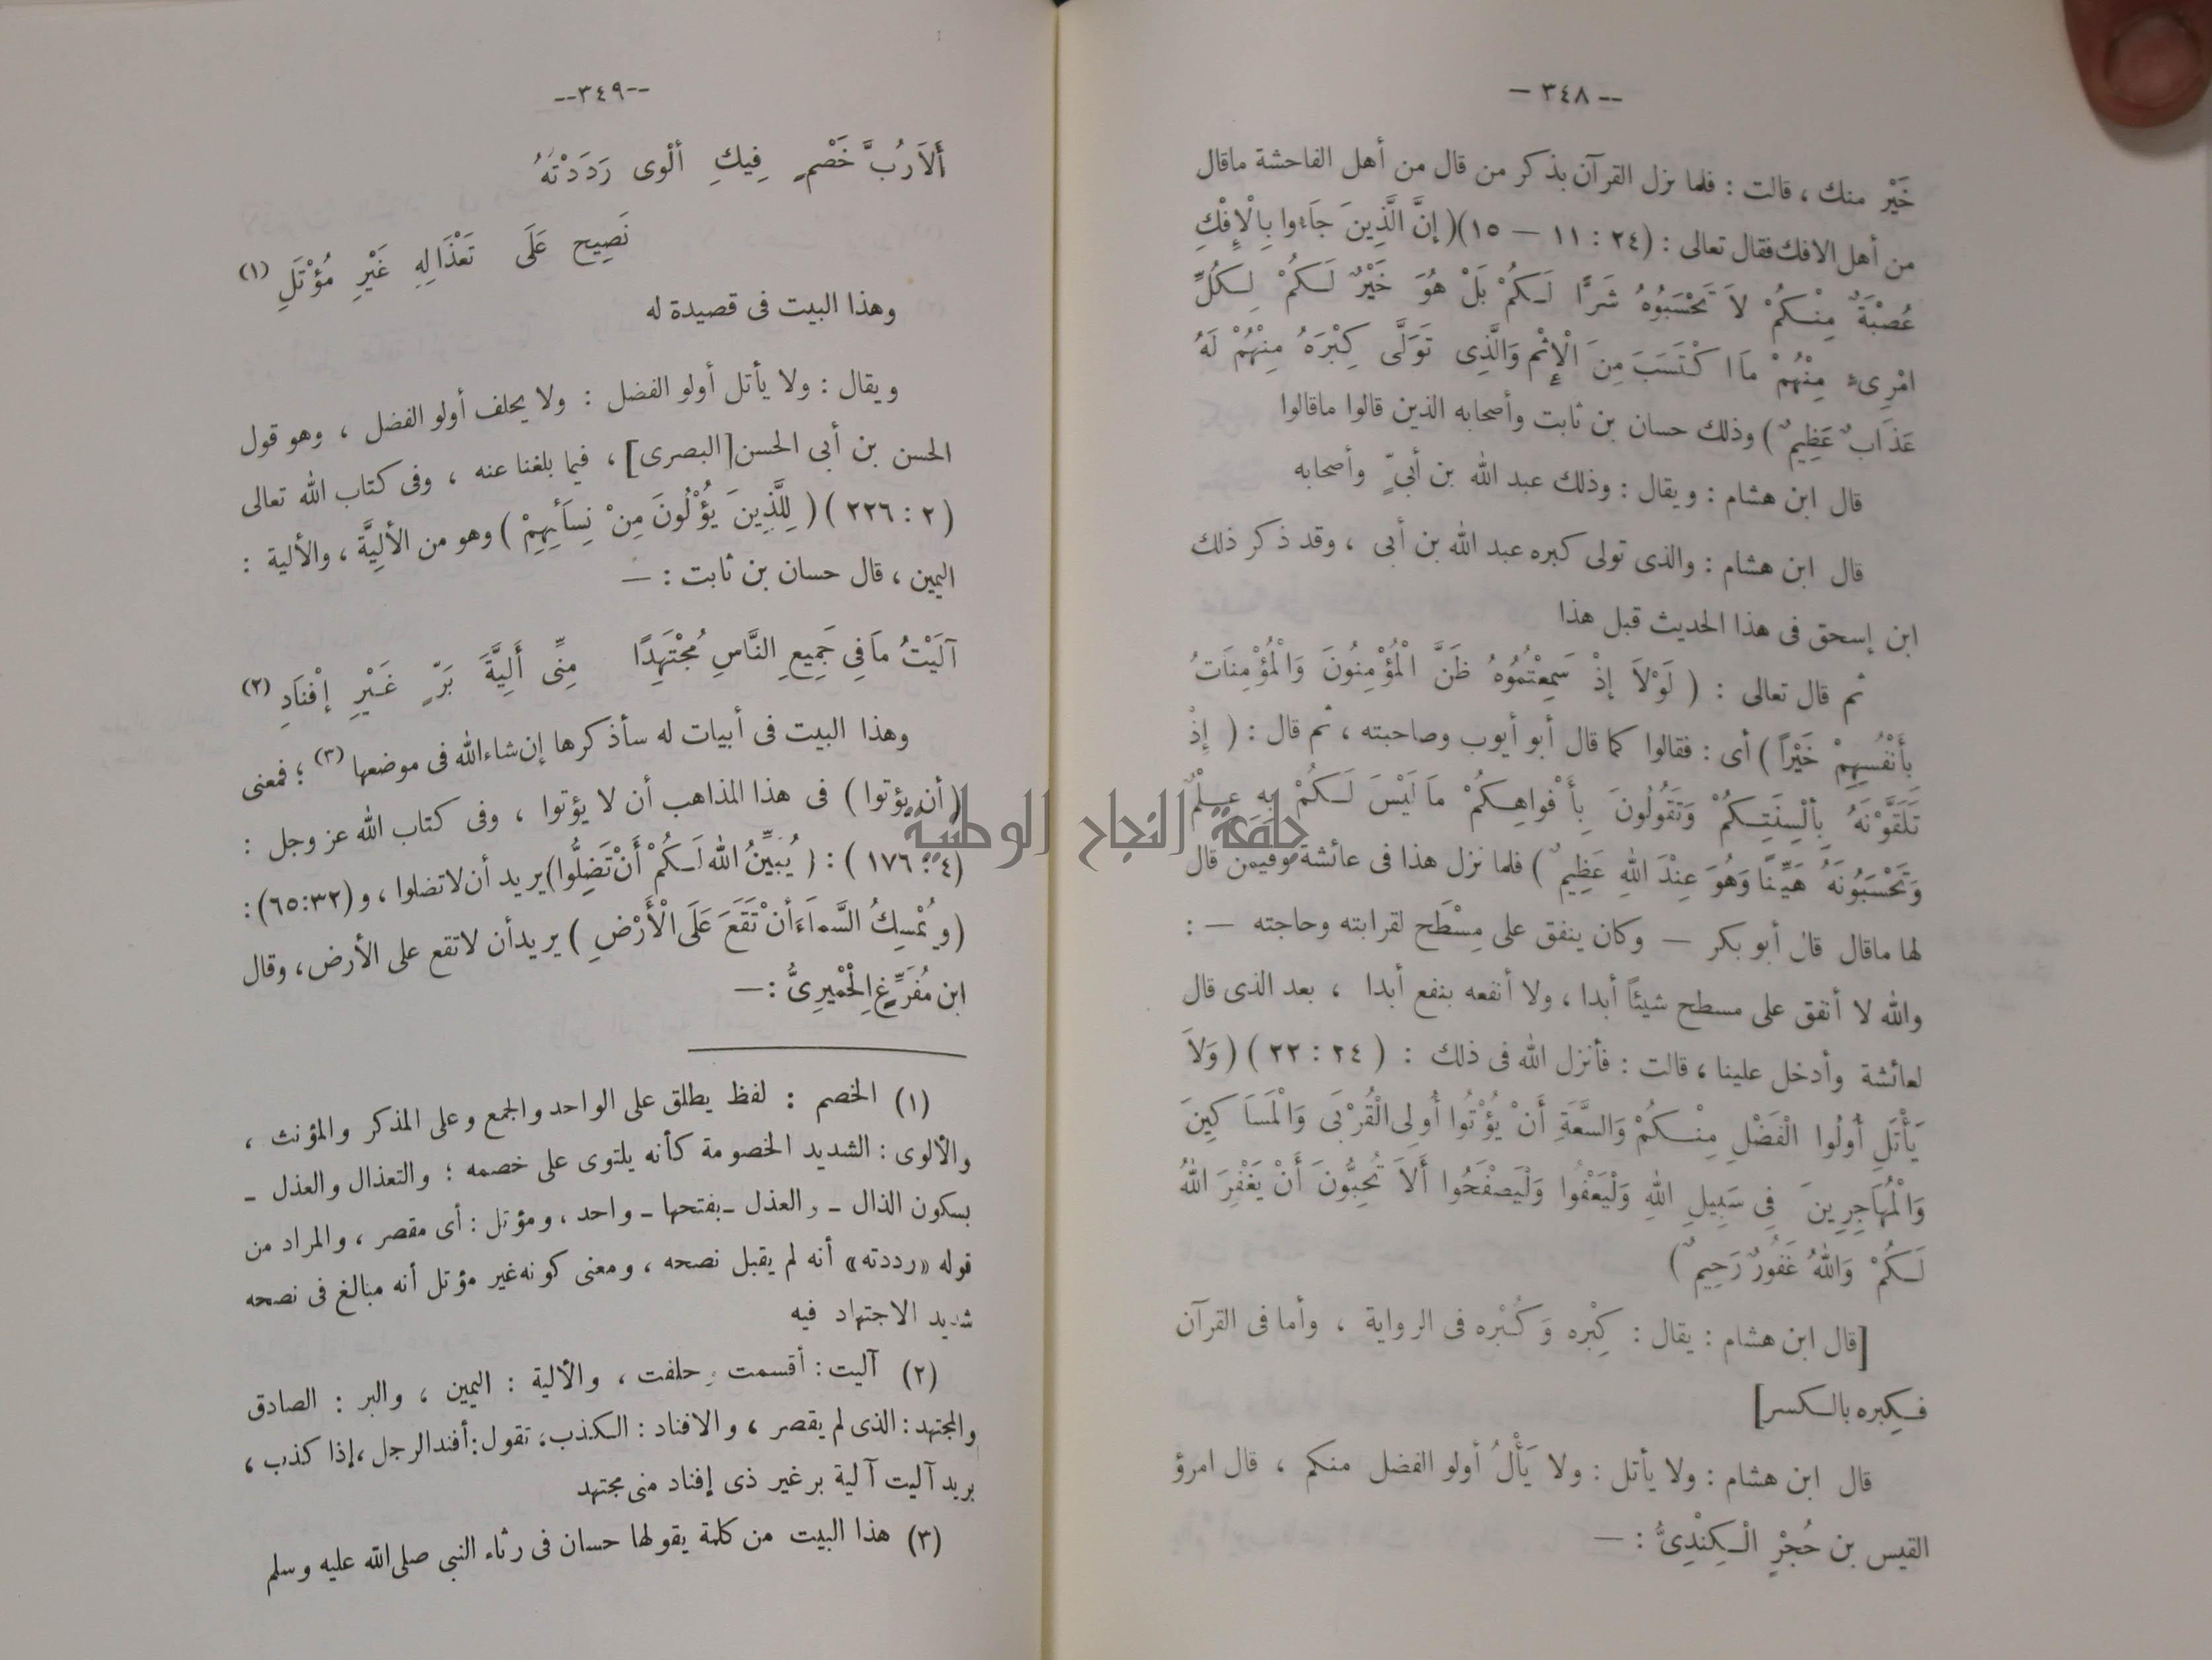 -- ٣٤٨ —
خَيْر منك ، قالت : فلما نزل القرآن بذكر من قال من أهل الفاحشة ماقال
من أهل الافك فقال تعالى : (٢٤ : ١١ — ١٥) ( إنَّ الَّذِينَ جَاءُوا بِالْإِفْكِ
عُصْبَةٌ مِنْكُمْ لاَ تَحْسَبُوهُ شَرًّا لَكُمْ بَلْ هُوَ خَيْرٌ لَكُمْ لِكُلِّ
امْرِىءٍ مِنْهُمْ مَا اكْتَسَبَ مِنَ الْإِثْمِ وَالَّذِى تَوَلَّى كِبْرَهُ مِنْهُمْ لَهُ
عَذَابٌ عَظِيمٌ ) وذلك حسان بن ثابت وأصحابه الذين قالوا ماقالوا
قال ابن هشام : ويقال : وذلك عبد الله بن أبىٍّ وأصحابه
قال ابن هشام : والذى تولى كبره عبد الله بن أبى ، وقد ذكر ذلك
ابن إسحق فى هذا الحديث قبل هذا
ثم قال تعالى : ( لَوْلاَ إذْ سَمِعْتُمُوهُ ظَنَّ الْمُؤْمِنُونَ وَالْمُؤْمِنَاتُ
بِأَنْفُسِهِمْ خَيْراً ) أى : فقالوا كما قال أبو أيوب وصاحبته ، ثم قال : ( إِذْ
تَلَقَّوْنَهُ بِأَلْسِنَتِكُمْ وَتَقُولُونَ بِأَفْوَاهِكُمْ مَا لَيْسَ لَكُمْ بِهِ عِلْمٌ
وَتَحْسَبُونَهُ هَيِّنًا وَهُوَ عِنْدَ اللهِ عَظِيمٌ ) فلما نزل هذا فى عائشة وفيمن قال
لها ماقال قال أبو بكر — وكان ينفق على مِسْطَح لقرابته وحاجته — :
والله لا أنفق على مسطح شيئاً أبدا ، ولا أنفعه بنفع أبدا ، بعد الذى قال
لعائشة وأدخل علينا ، قالت : فأنزل الله فى ذلك : ( ٢٤ : ٢٢ ) ( وَلاَ
يَأْتَلِ أُولُوا الْفَضْلِ مِنْكُمْ وَالسَّعَةِ أَنْ يُؤْتُوا أُولِى الْقُرْبَى وَالْمَسَاكِينَ
وَالْمُهَاجِرِينَ فِى سَبِيلِ اللهِ وَلْيَعْفُوا وَلْيَصْفَحُوا أَلاَ تُحِبُّونَ أَنْ يَغْفِرَ اللهُ
لَكُمْ وَاللهُ غَفُورٌ رَحِيمٌ )
[قال ابن هشام : يقال : كِبْره وَكُبْره فى الرواية ، وأما فى القرآن
فكِبره بالكسر]
قال ابن هشام : ولا يأتل : ولا يَأْلُ أولو الفضل منكم ، قال امرؤ
القيس بن حُجْرٍ الْكِنْدِىُّ : —
--٣٤٩--
أَلاَ رُبَّ خَصْمٍ فِيكِ ألْوى رَدَدْتهُ
نَصِيح عَلَى تَعْذَالِهِ غَيْرِ مُؤْتَلِ (١)
وهذا البيت فى قصيدة له
ويقال : ولا يأتل أولو الفضل : ولا يحلف أولو الفضل ، وهو قول
الحسن بن أبى الحسن [البصرى] ، فيما بلغنا عنه ، وفى كتاب الله تعالى
( ٢ : ٢٢٦ ) ( لِلَّذِينَ يُؤْلُونَ مِنْ نِسَائِهِمْ ) وهو من الألِيَّة ، والألية :
اليمين ، قال حسان بن ثابت : —
آلَيْتُ مَا فِى جَمِيعِ النَّاسِ مُجْتَهِدًا مِنِّى أَلِيَّةَ بَرٍّ غَيْرِ إفْنَادِ (٢)
وهذا البيت فى أبيات له سأذكرها إن شاء الله فى موضعها (٣) ؛ فمعنى
( أن يؤتوا ) فى هذا المذاهب أن لا يؤتوا ، وفى كتاب الله عز وجل :
(٤ : ١٧٦ ) : ( يُبيِّنُ الله لَكُمْ أَنْ تَضِلُّوا) يريد أن لا تضلوا ، و (٣٢:٦٥) :
( ويُمْسِكُ السَّمَاءَ أنْ تَقَعَ عَلَى الْأَرْضِ ) يريد أن لا تقع على الأرض ، وقال
ابن مُفَرِّغٍ الْحِمْيرِىُّ : —
(١) الخصم : لفظ يطلق على الواحد والجمع وعلى المذكر والمؤنث ،
والألوى : الشديد الخصومة كأنه يلتوى على خصمه ؛ والتعذال والعذل -
بسكون الذال - والعذل - بفتحها - واحد ، ومؤتل : أى مقصر ، والمراد من
قوله «رددته» أنه لم يقبل نصحه ، ومعنى كونه غير مؤتل أنه مبالغ فى نصحه
شديد الاجتهاد فيه
(٢) آليت : أقسمت وحلفت ، والألية : اليمين ، والبر : الصادق
والمجتهد : الذى لم يقصر ، والافناد : الكذب ، تقول : أفند الرجل ، إذا كذب ،
يريد آليت آلية بر غير ذى إفناد منى مجتهد
(٣) هذا البيت من كلمة يقولها حسان فى رثاء النبى صلى الله عليه وسلم
جامعة النجاح الوطنية